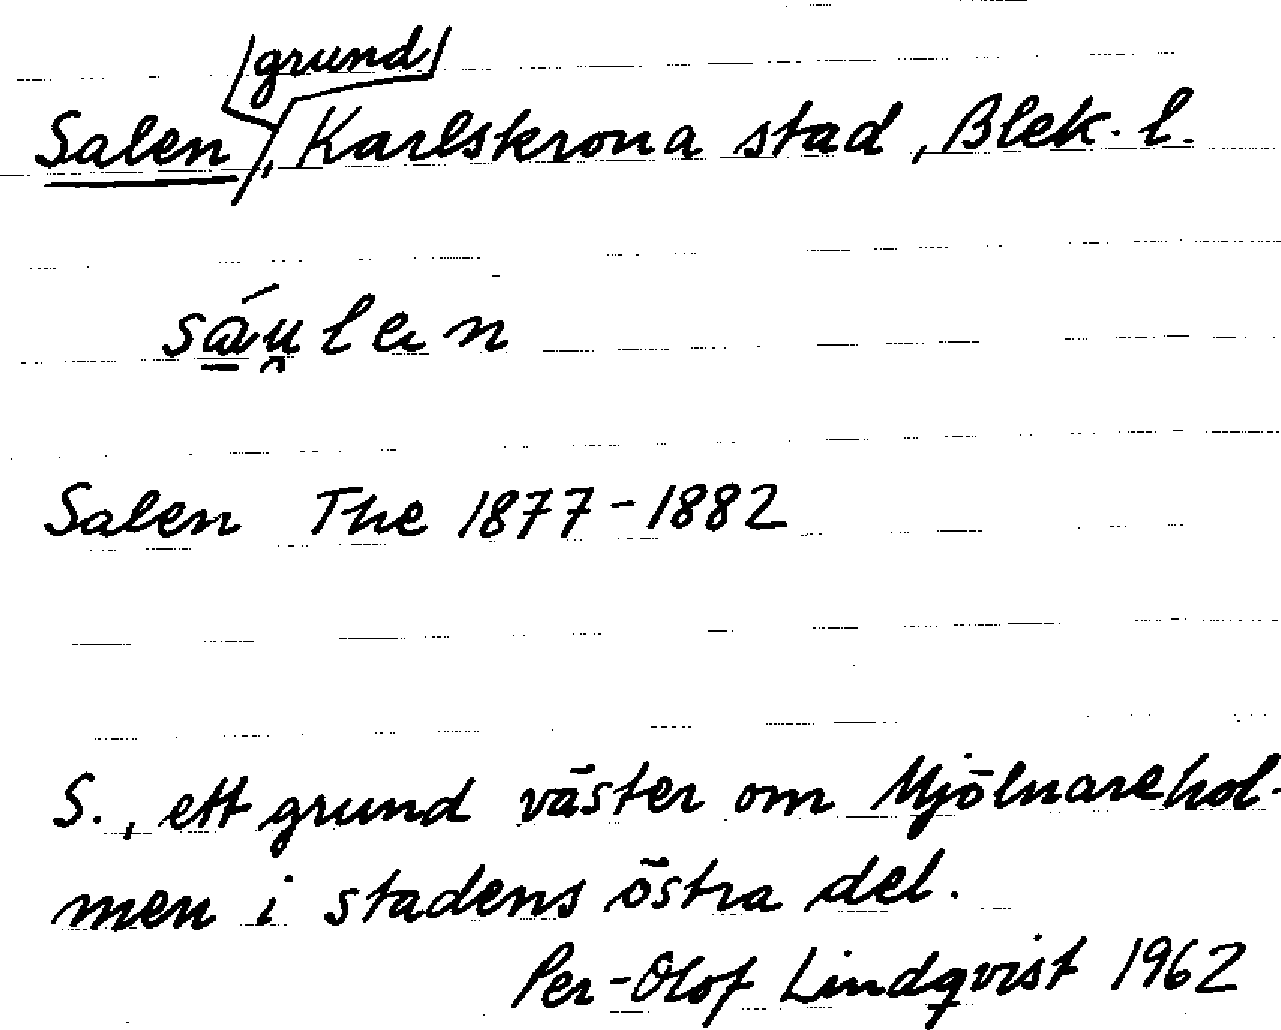 Salen, grund, Karlskrona stad, Blek. l.
sá̱u̯len
Salen The 1877-1882
S., ett grund väster om Mjölnarehol-
men i stadens östra del.
Per-Olof Lindqvist 1962